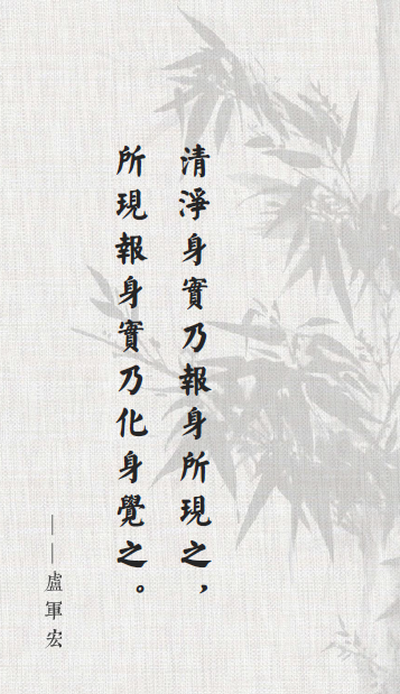 清淨身實乃報身所現之，
所現報身實乃化身覺之。
——盧軍宏